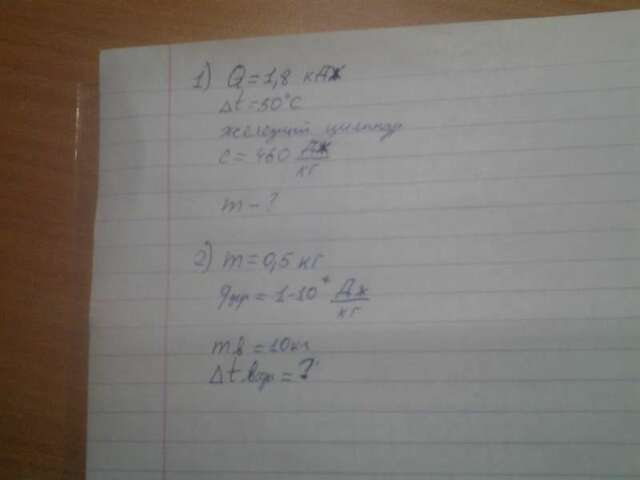 1) Q = 1,8 кДж
Δt = 50°C
железный цилиндр
c = 460 Дж/кг
m - ?
2) m = 0,5 кг
qдр = 1·10⁷ Дж/кг
mв = 20кг
Δt вод = ?